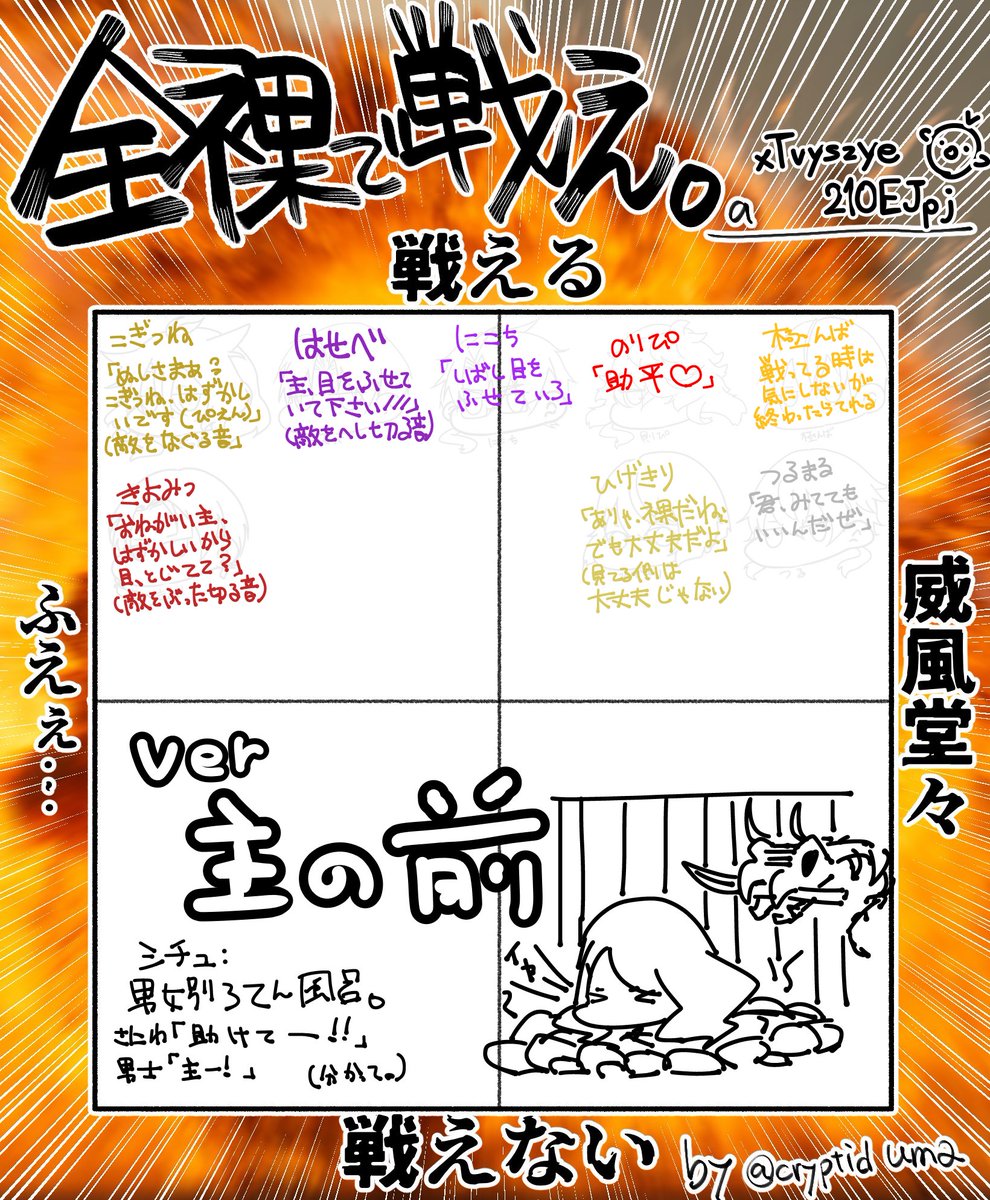 全裸で戦え。
a xTvyszye
210EJpj
戦える
こぎつね
「ぬしさまぁ?
こぎつね、はずかし
いです(ぴえん)」
(敵をなぐる音)
はせべ
「主、目をふせて
いて下さい///」
(敵をへし切る音)
にこち
「しばし目を
ふせていろ」
のりぴ
「助平♡」
極んば
戦ってる時は
気にしないが
終わったらてれる
きよみつ
「おねがい主、
はずかしいから
目、とじてて?」
(敵をぶった切る音)
ひげきり
「ありゃ、裸だねぇ
でも大丈夫だよ」
(見てる側は
大丈夫じゃない)
つるまる
「君、みてても
いいんだぜ」
つる
ふえぇ…
威風堂々
ver
主の前
シチュ:
男女別ろてん風呂。
さにわ「助けてー!!」
男士「主ー!」 (分かて。)
イヤ
戦えない
by @cryptid uma